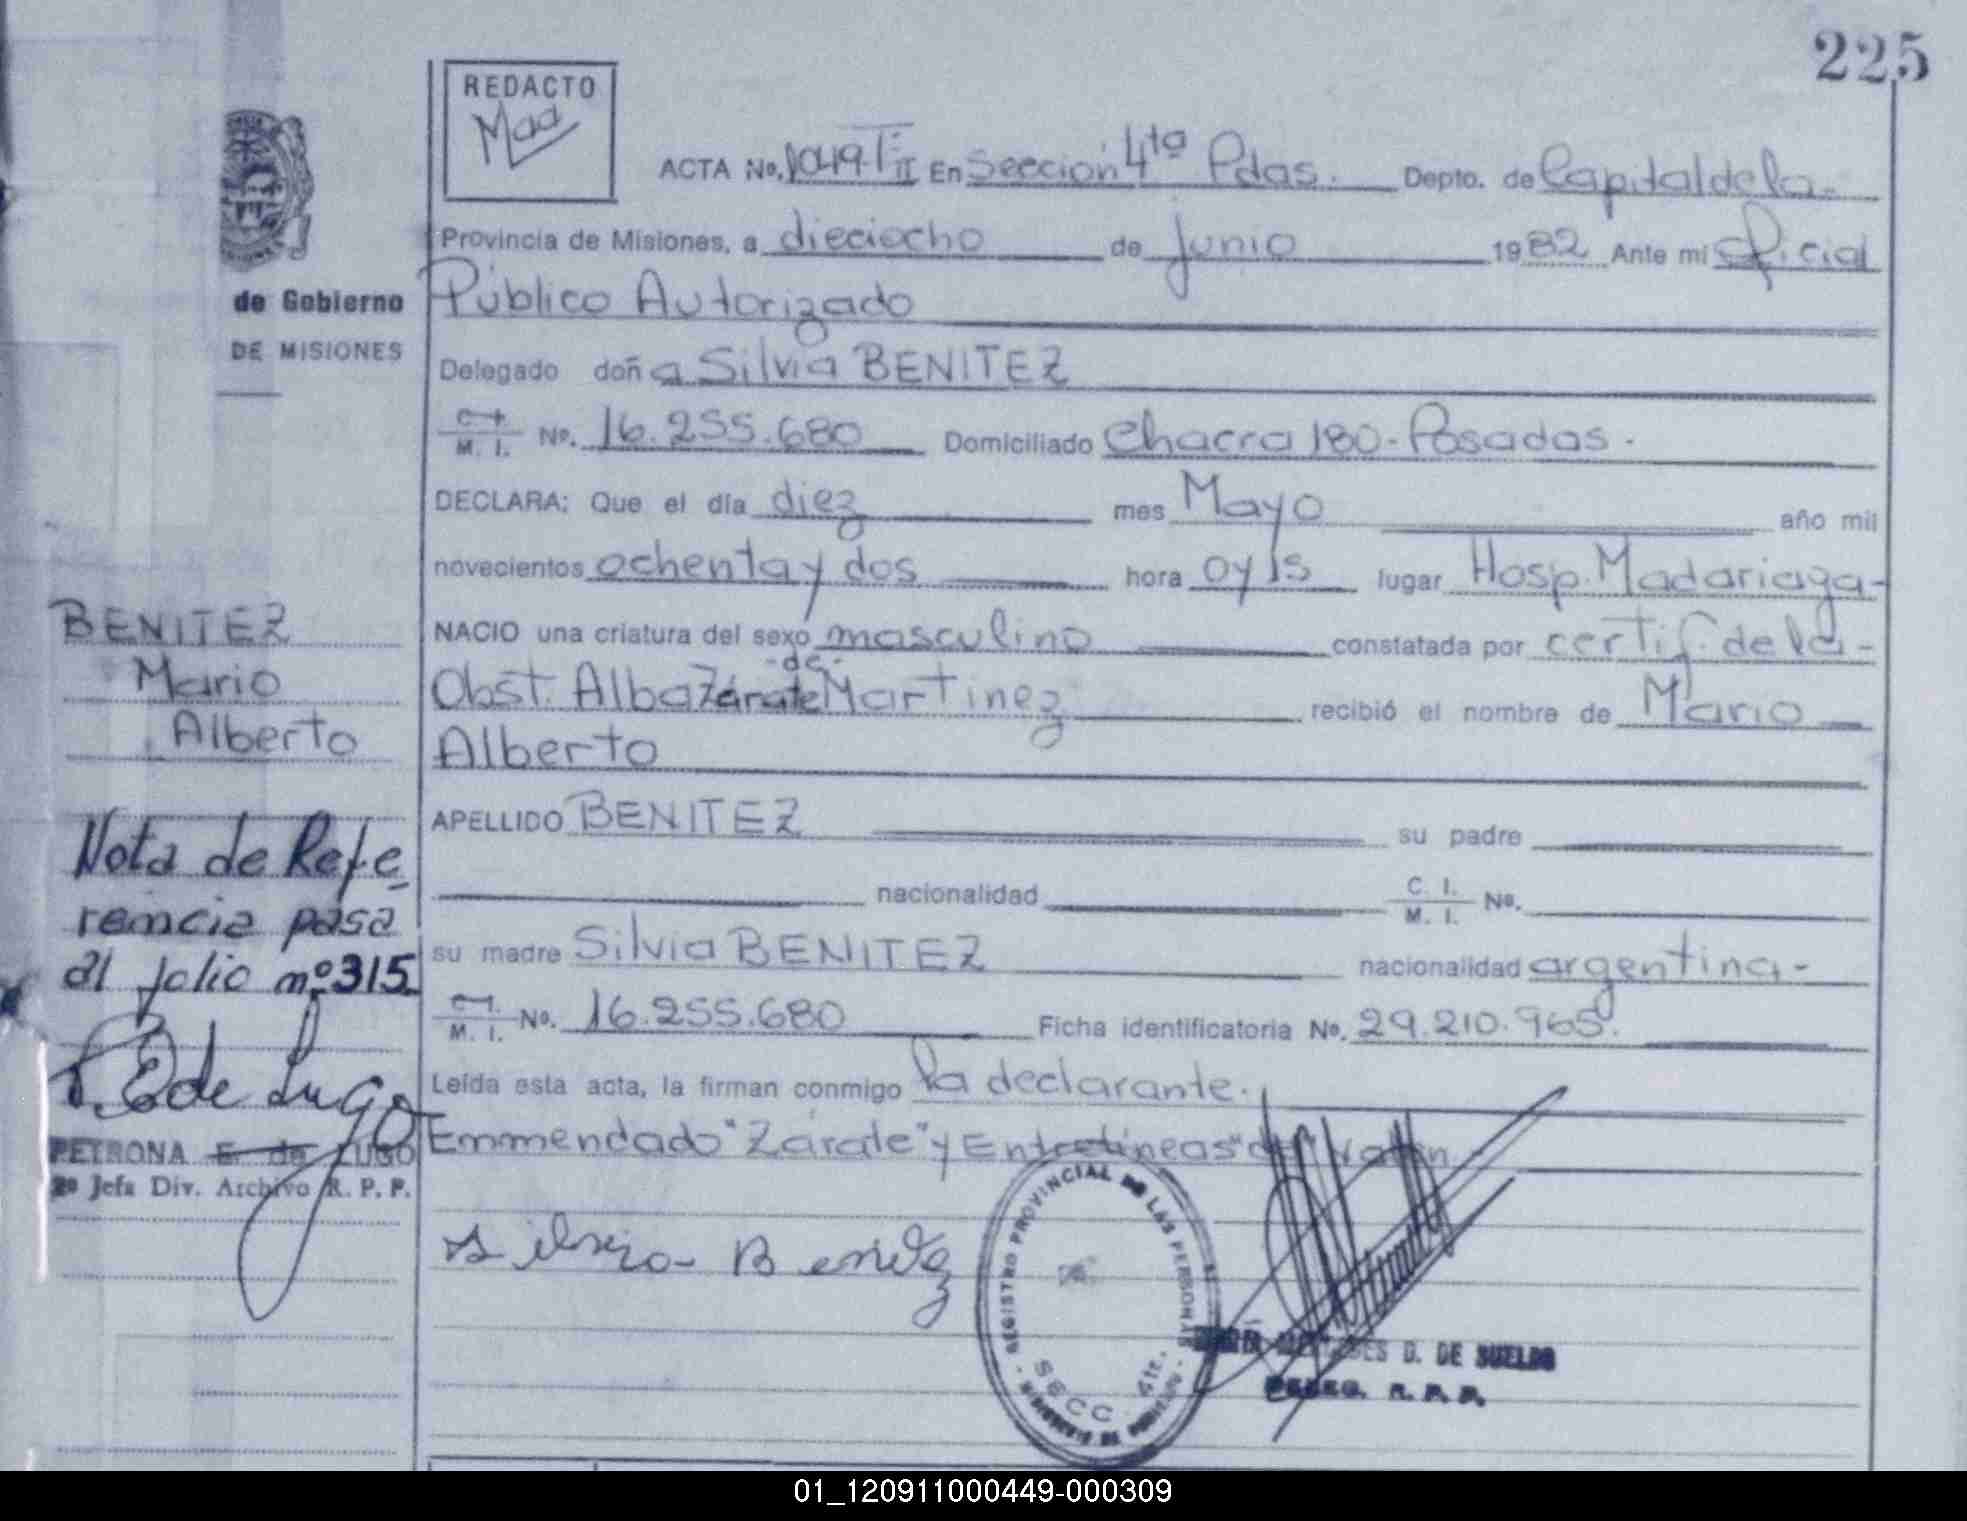 225
REDACTO
Mad
ACTA No. 1049 T II En Sección 4ta Pdas. Depto. de Capital de la-
Provincia de Misiones, a dieciocho de junio 1982 Ante mi oficial
de Gobierno
DE MISIONES
Público Autorizado
Delegado doña Silvia BENITEZ
C. I. M. I. No. 16.255.680 Domiciliado Chacra 180-Posadas.
DECLARA: Que el día diez mes Mayo año mil
novecientos ochenta y dos hora 0 y 15 lugar Hosp. Madariaga-
NACIO una criatura del sexo masculino constatada por certif. de la-
-de-
Obst. Alba Zárate Martinez recibió el nombre de Mario
Alberto
APELLIDO BENITEZ su padre
nacionalidad C. I. M. I. No.
su madre Silvia BENITEZ nacionalidad argentina-
C. I. M. I. No. 16.255.680 Ficha identificatoria No. 29.210.965.
Leída esta acta, la firman conmigo la declarante.
Emmendado "Zárate" y Entrelineas "de"
Silvia Benitez
BENITEZ
Mario
Alberto
Nota de Refe-
rencia pasa
al folio nº 315.
P. E de Lugo
PETRONA E. de LUGO
2º Jefa Div. Archivo R. P. P.
REGISTRO PROVINCIAL DE LAS PERSONAS
SECC. 4ta.
D. DE SUELDO
R. P. P.
01_120911000449-000309